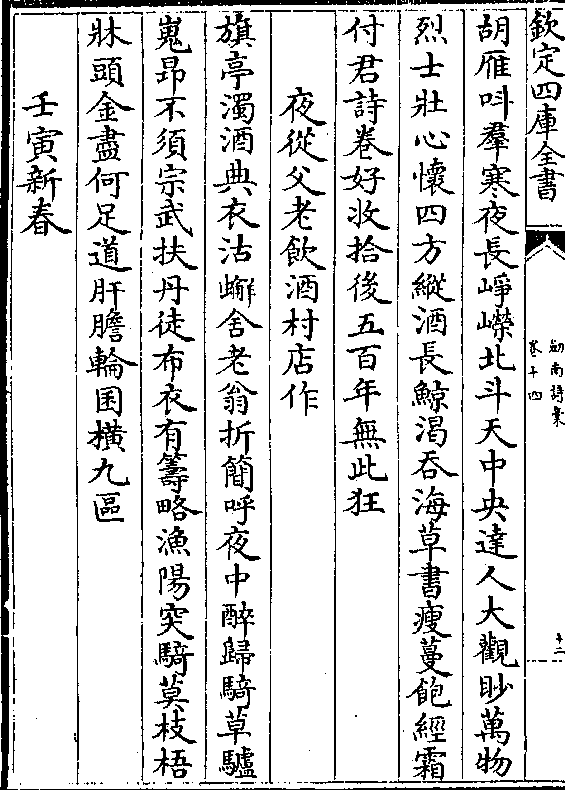 欽定四庫全書
劒南詩稾
卷十四
十二
胡雁呌羣寒夜長崢嶸北斗天中央達人大觀眇萬物
烈士壯心懷四方縱酒長鯨渴吞海草書瘦蔓飽經霜
付君詩卷好收拾後五百年無此狂
夜從父老飲酒村店作
旗亭濁酒典衣沽舍老翁折簡呼夜中醉歸騎草驢
嵬昂不須宗武扶丹徒布衣有籌略漁陽突騎莫枝梧
牀頭金盡何足道肝膽輪囷橫九區
壬寅新春